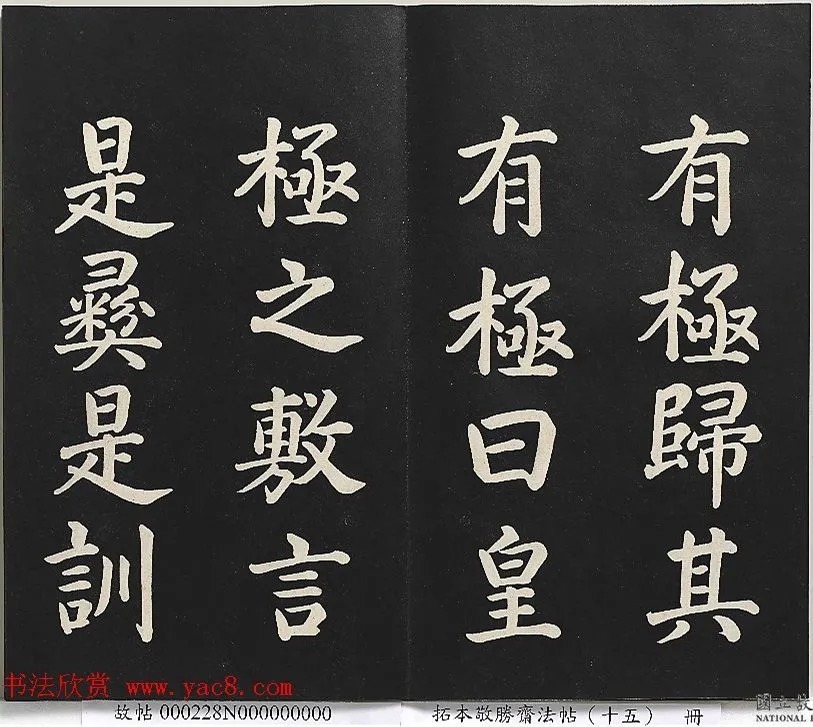 有極歸其
有極曰皇
極之敷言
是彝是訓
書法欣赏 www.yac8.com
故帖000228N000000000
拓本敬勝齋法帖（十五） 冊
國立故
NATIONAL